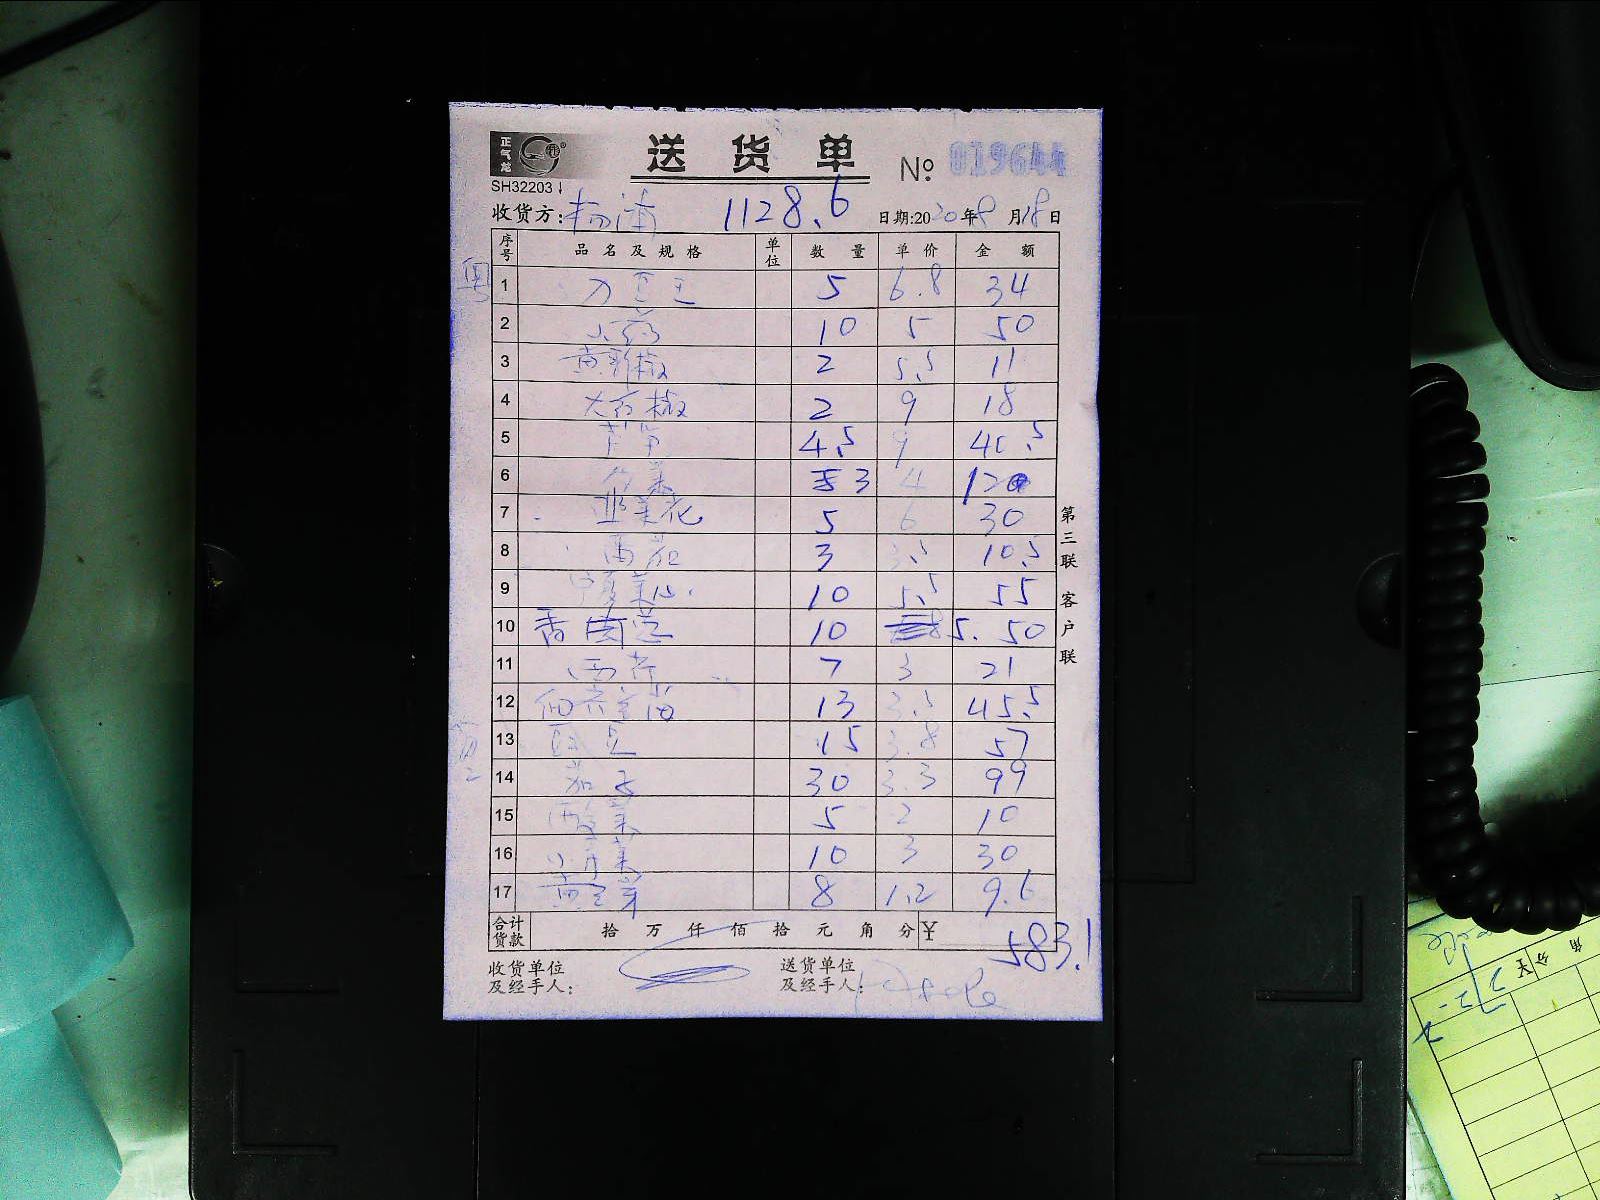 正气龙
送 货 单
№ 019644
SH32203
收货方: 杨浦 1128.6 日期:2020年8月18日
序号 品名及规格 单位 数量 单价 金额
粤
1 刀豆王 5 6.8 34
2 山药 10 5 50
3 黄彩椒 2 5.5 11
4 大红椒 2 9 18
5 芦笋 4.5 9 40.5
6 3 4 12
7 韭菜花 5 6 30
8 西茄 3 3.5 10.5
9 宁夏菜心 10 5.5 55
10 香 10 5. 50
11 西芹 7 3 21
12 13 3.5 45.5
13 豆 15 3.8 57
14 茄子 30 3.3 99
15 酸菜 5 2 10
16 小唐菜 10 3 30
17 黄豆芽 8 1.2 9.6
合计货款 拾 万 仟 佰 拾 元 角 分 ¥ 583.1
收货单位及经手人:
送货单位及经手人:
第三联 客户联
角 分 ¥